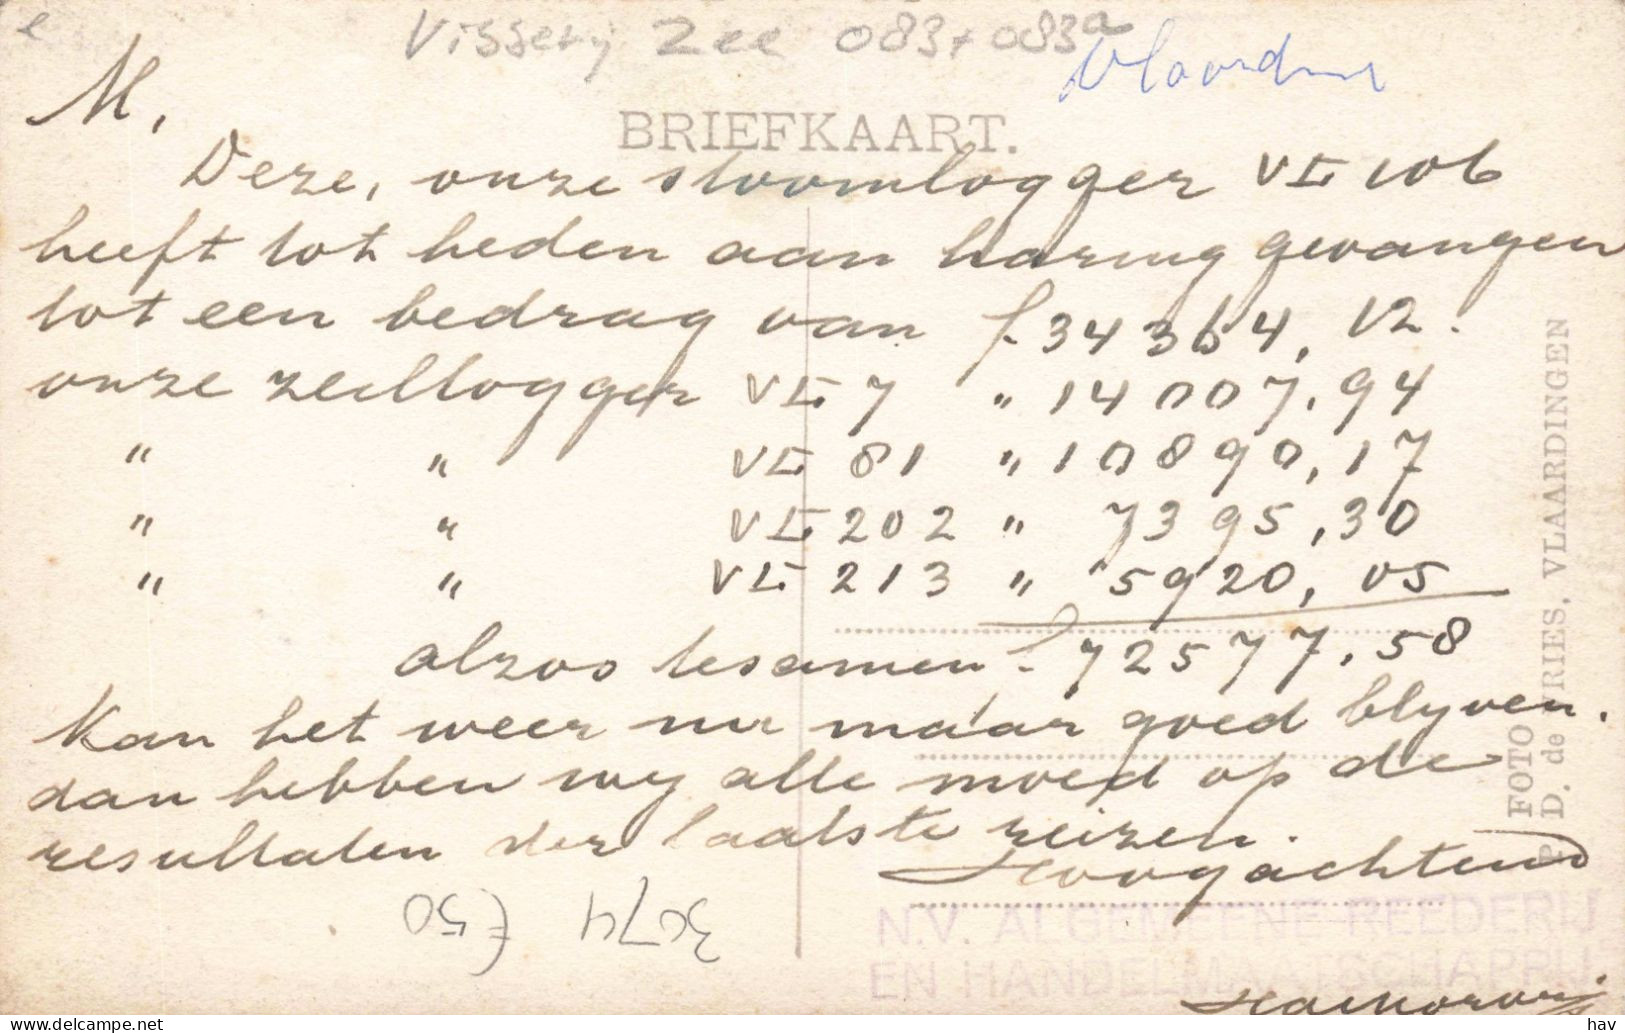 Visserij Zee 083 + 083a
BRIEFKAART.
M,
Deze, onze stoomlogger VL 106
heeft tot heden aan haring gevangen
tot een bedrag van f 34364,12.
onze zeillogger VL 7 " 14007,94
" " VL 81 " 10890,17
" " VL 202 " 7395,30
" " VL 213 " 5920,05
alzoo tesamen f 72577,58
Kan het weer nu maar goed blyven.
dan hebben wy alle moed op de
resultaten der laatste reizen.
Hoogachtend
N.V. ALGEMEENE REEDERIJ
EN HANDELMAATSCHAPPIJ
FOTO
P. D. de VRIES, VLAARDINGEN
3674 €50
hav